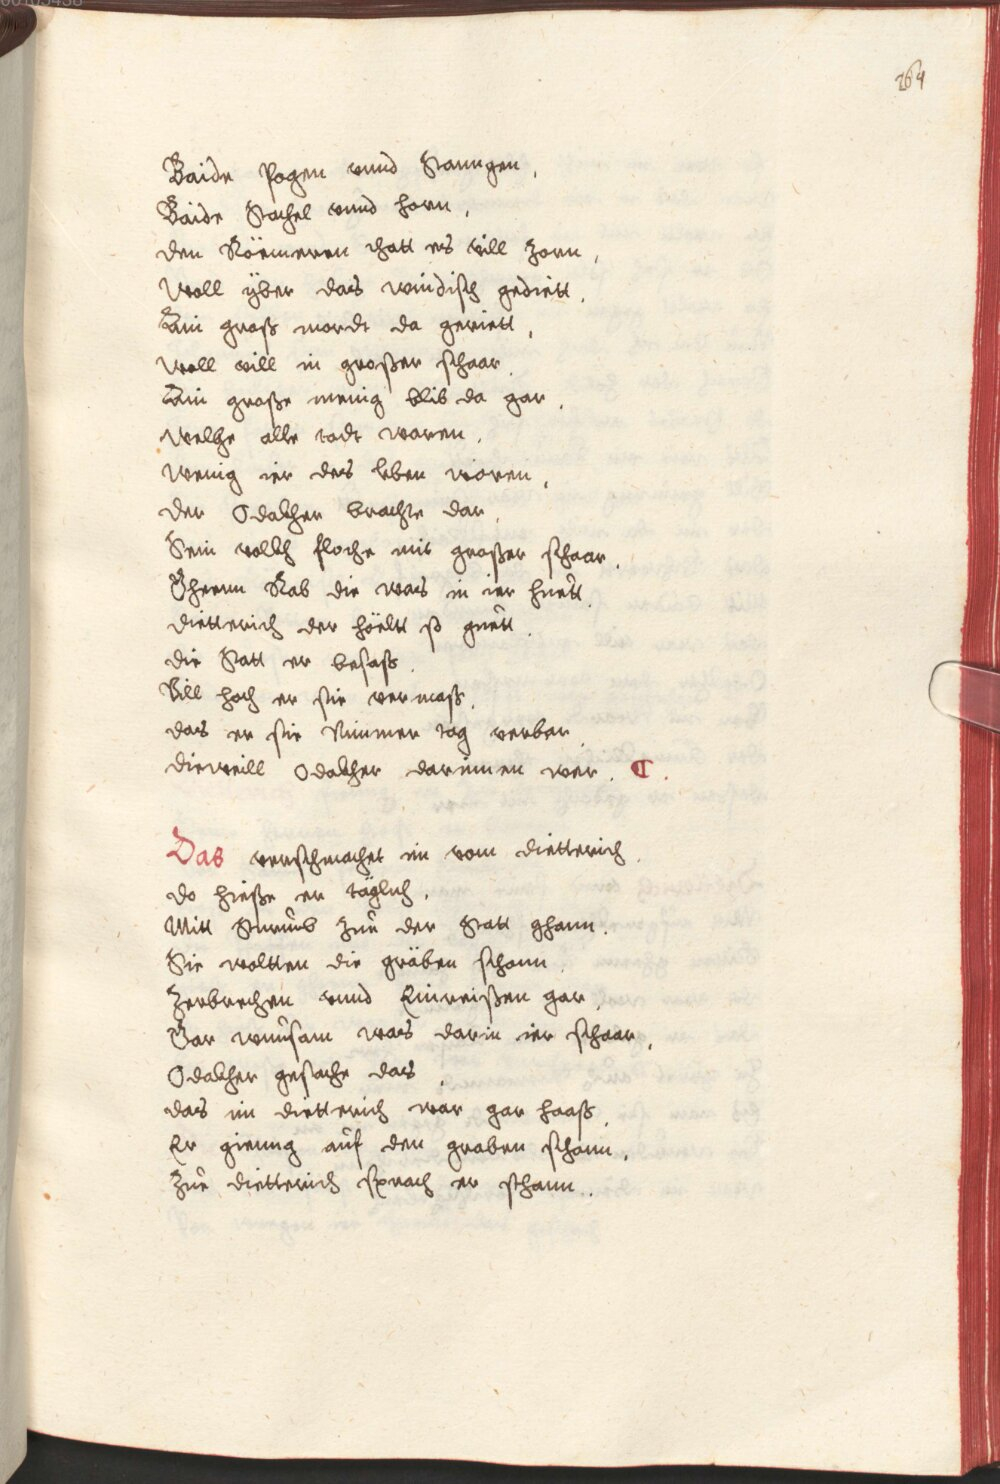 264
Baide Pogen vnnd Stanngen,
Baide Stachel vnnd horn,
den Römeren thatt es vill Zorn,
Woll yber das windisch gediett,
Ain groß mordt da geriett,
Woll vill in großer schaar,
Ain große menig blib da gar,
Welche alle todt waren,
Wenig ier des leben woren,
der Odakher brachte dar,
Sein vollkh floche mit großer schaar,
Ghenn Rab die was in ier huett,
dietterich der höeltt so guett,
die Statt er besaß,
Vill hoch er sie vermaß,
das er sie Nimmer tag verber,
dieweill Odakher darinnen wer.
Das verschmachet in vom dietterich,
do hieße er täglich,
Mitt Sturmb Zue der Statt ghann,
Sie woltten die gräben schonn,
Zerbrechen vnnd Einreißen gar,
Gar wunsam was darin ier schaar,
Odakher gesache das,
das im dietterich war gar haaß,
Er gienng auf den graben schonn,
Zue dietterich sprach er schann,